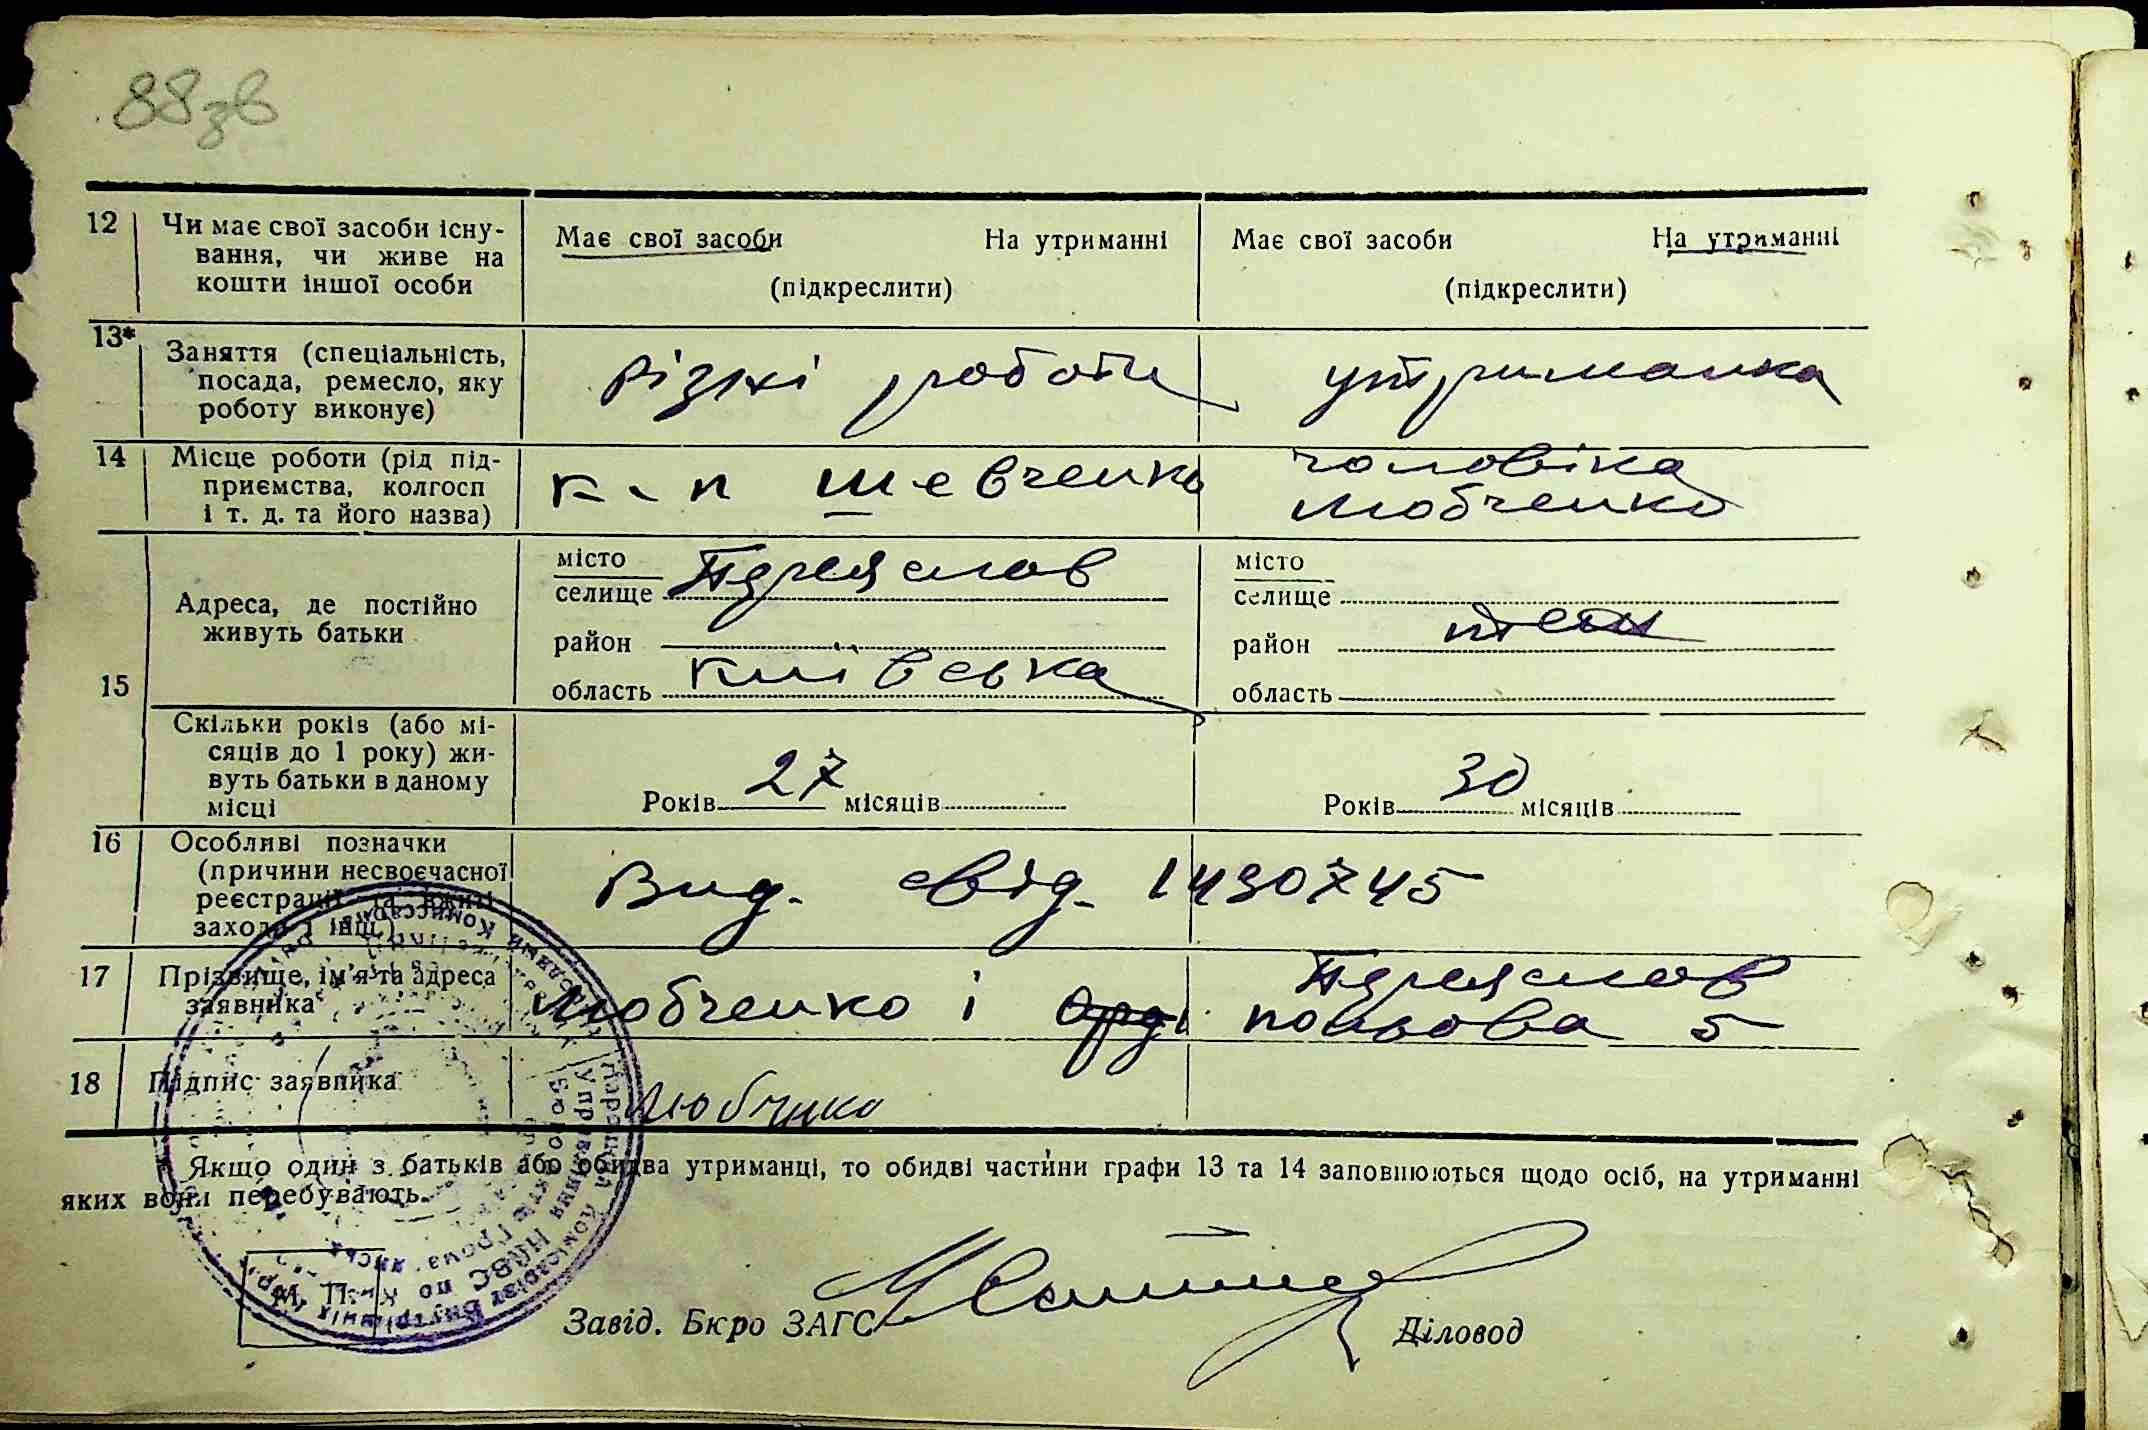 88зв
12 Чи має свої засоби існу-
вання, чи живе на
кошти іншої особи
Має свої засоби На утриманні
(підкреслити)
Має свої засоби На утриманні
(підкреслити)
13* Заняття (спеціальність,
посада, ремесло, яку
роботу виконує)
різні роботи
утриманка
14 Місце роботи (рід під-
приємства, колгосп
і т. д. та його назва)
к-п Шевченко
чоловіка
Любченко
15 Адреса, де постійно
живуть батьки
місто
селище Переяслав
район
область Київська
місто
селище
район
область
Скільки років (або мі-
сяців до 1 року) жи-
вуть батьки в даному
місці
Років 27 місяців
Років 30 місяців
16 Особливі позначки
(причини несвоєчасної
реєстрації та вжиті
заходи і інш.)
Вид. свід. 1430745
17 Прізвище, ім'я та адреса
заявника
Любченко і
Переяслав
5
18 Підпис заявника
Любченко
Якщо один з батьків або обидва утриманці, то обидві частини графи 13 та 14 заповнюються щодо осіб, на утриманні
яких вони перебувають.
М. П.
Завід. Бюро ЗАГС
Діловод